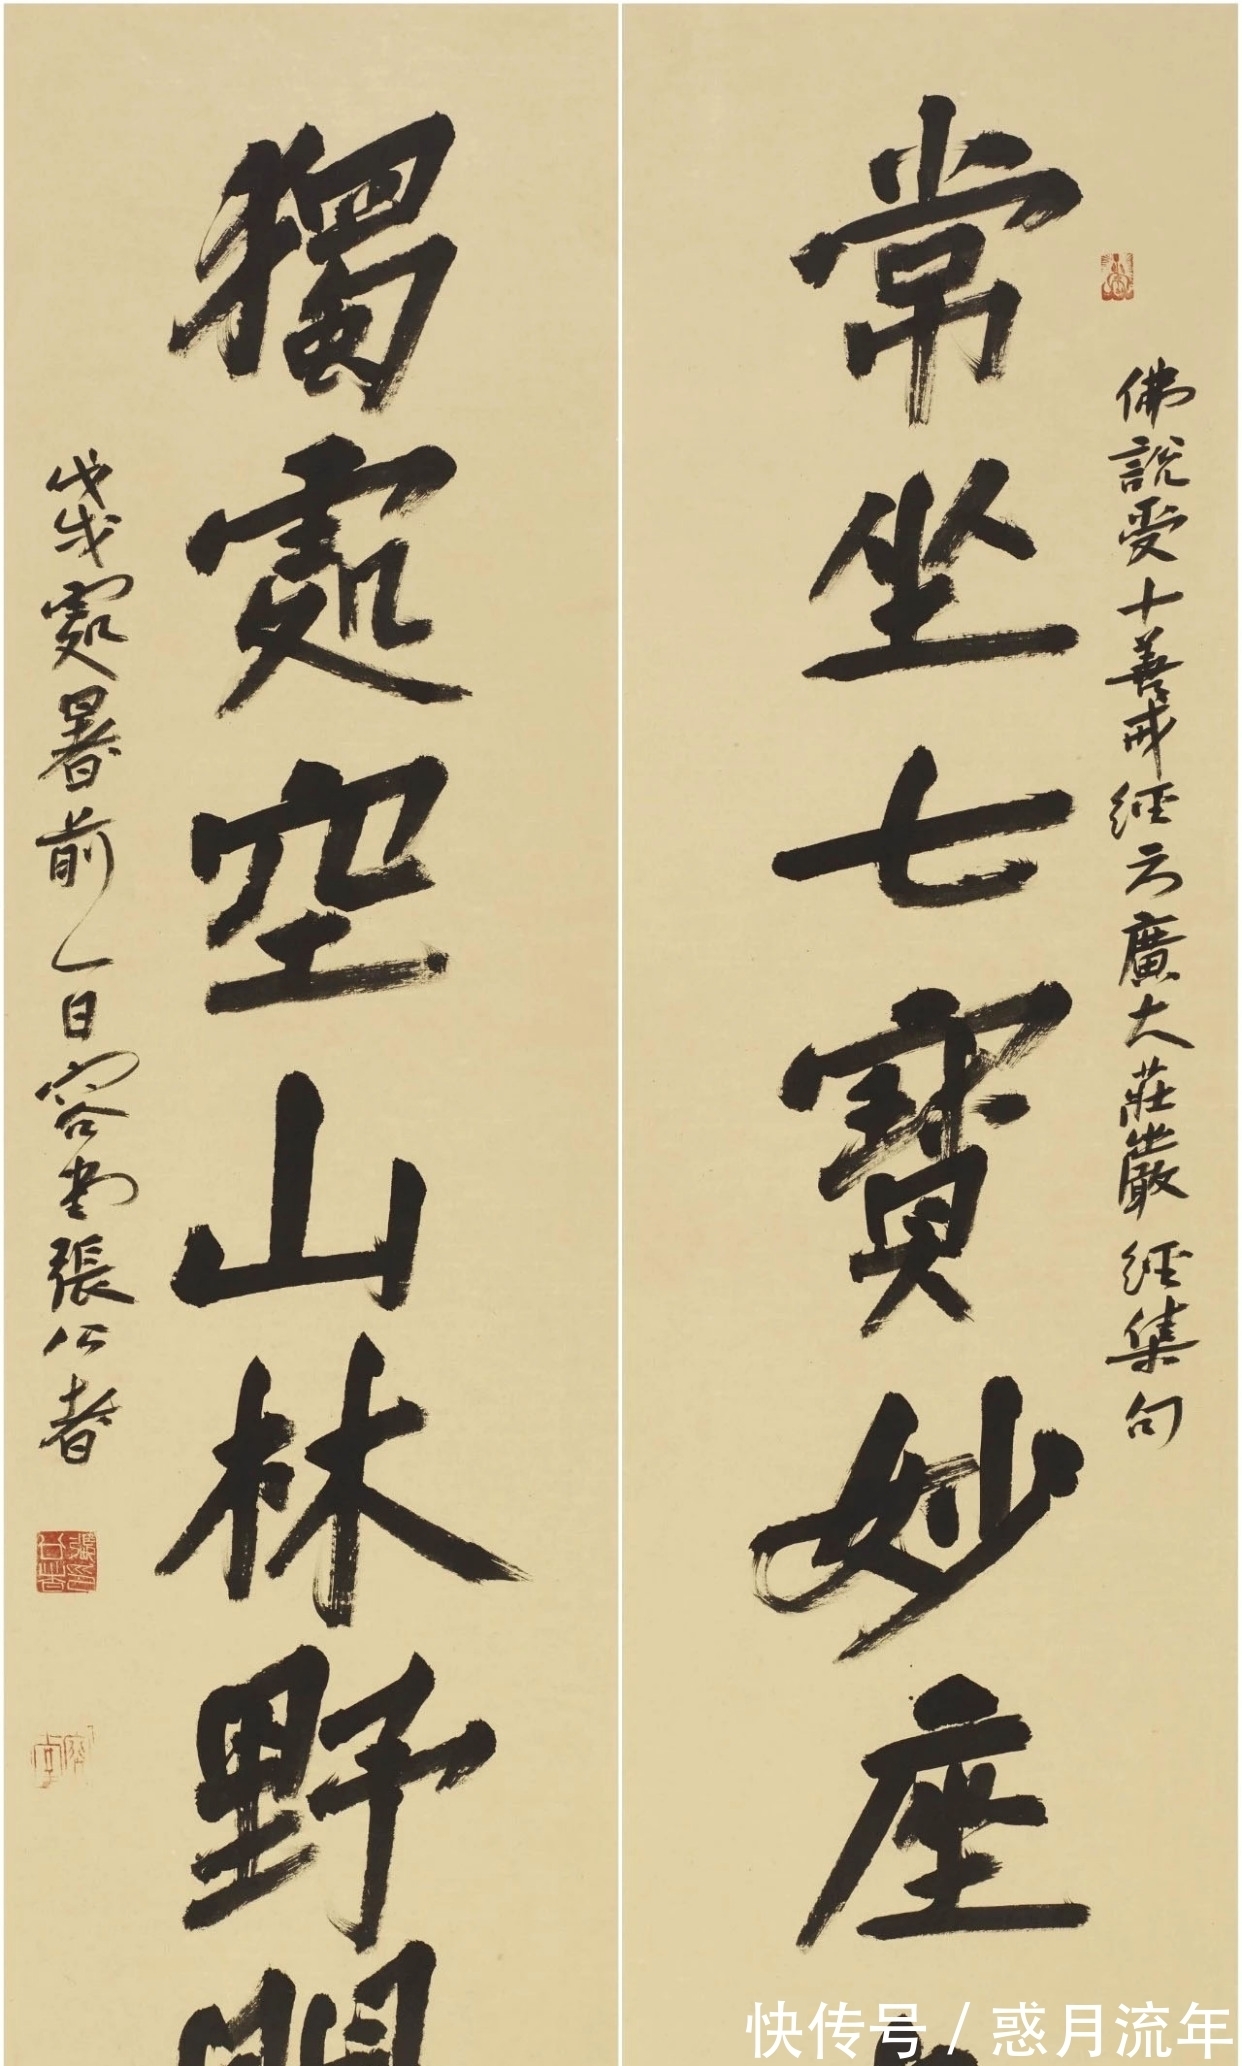 佛說受十善戒經云廣大莊嚴經集句
常坐七寶妙座
獨處空山林野間
戊戌處暑前一日容堂張公者
快传号/惑月流年